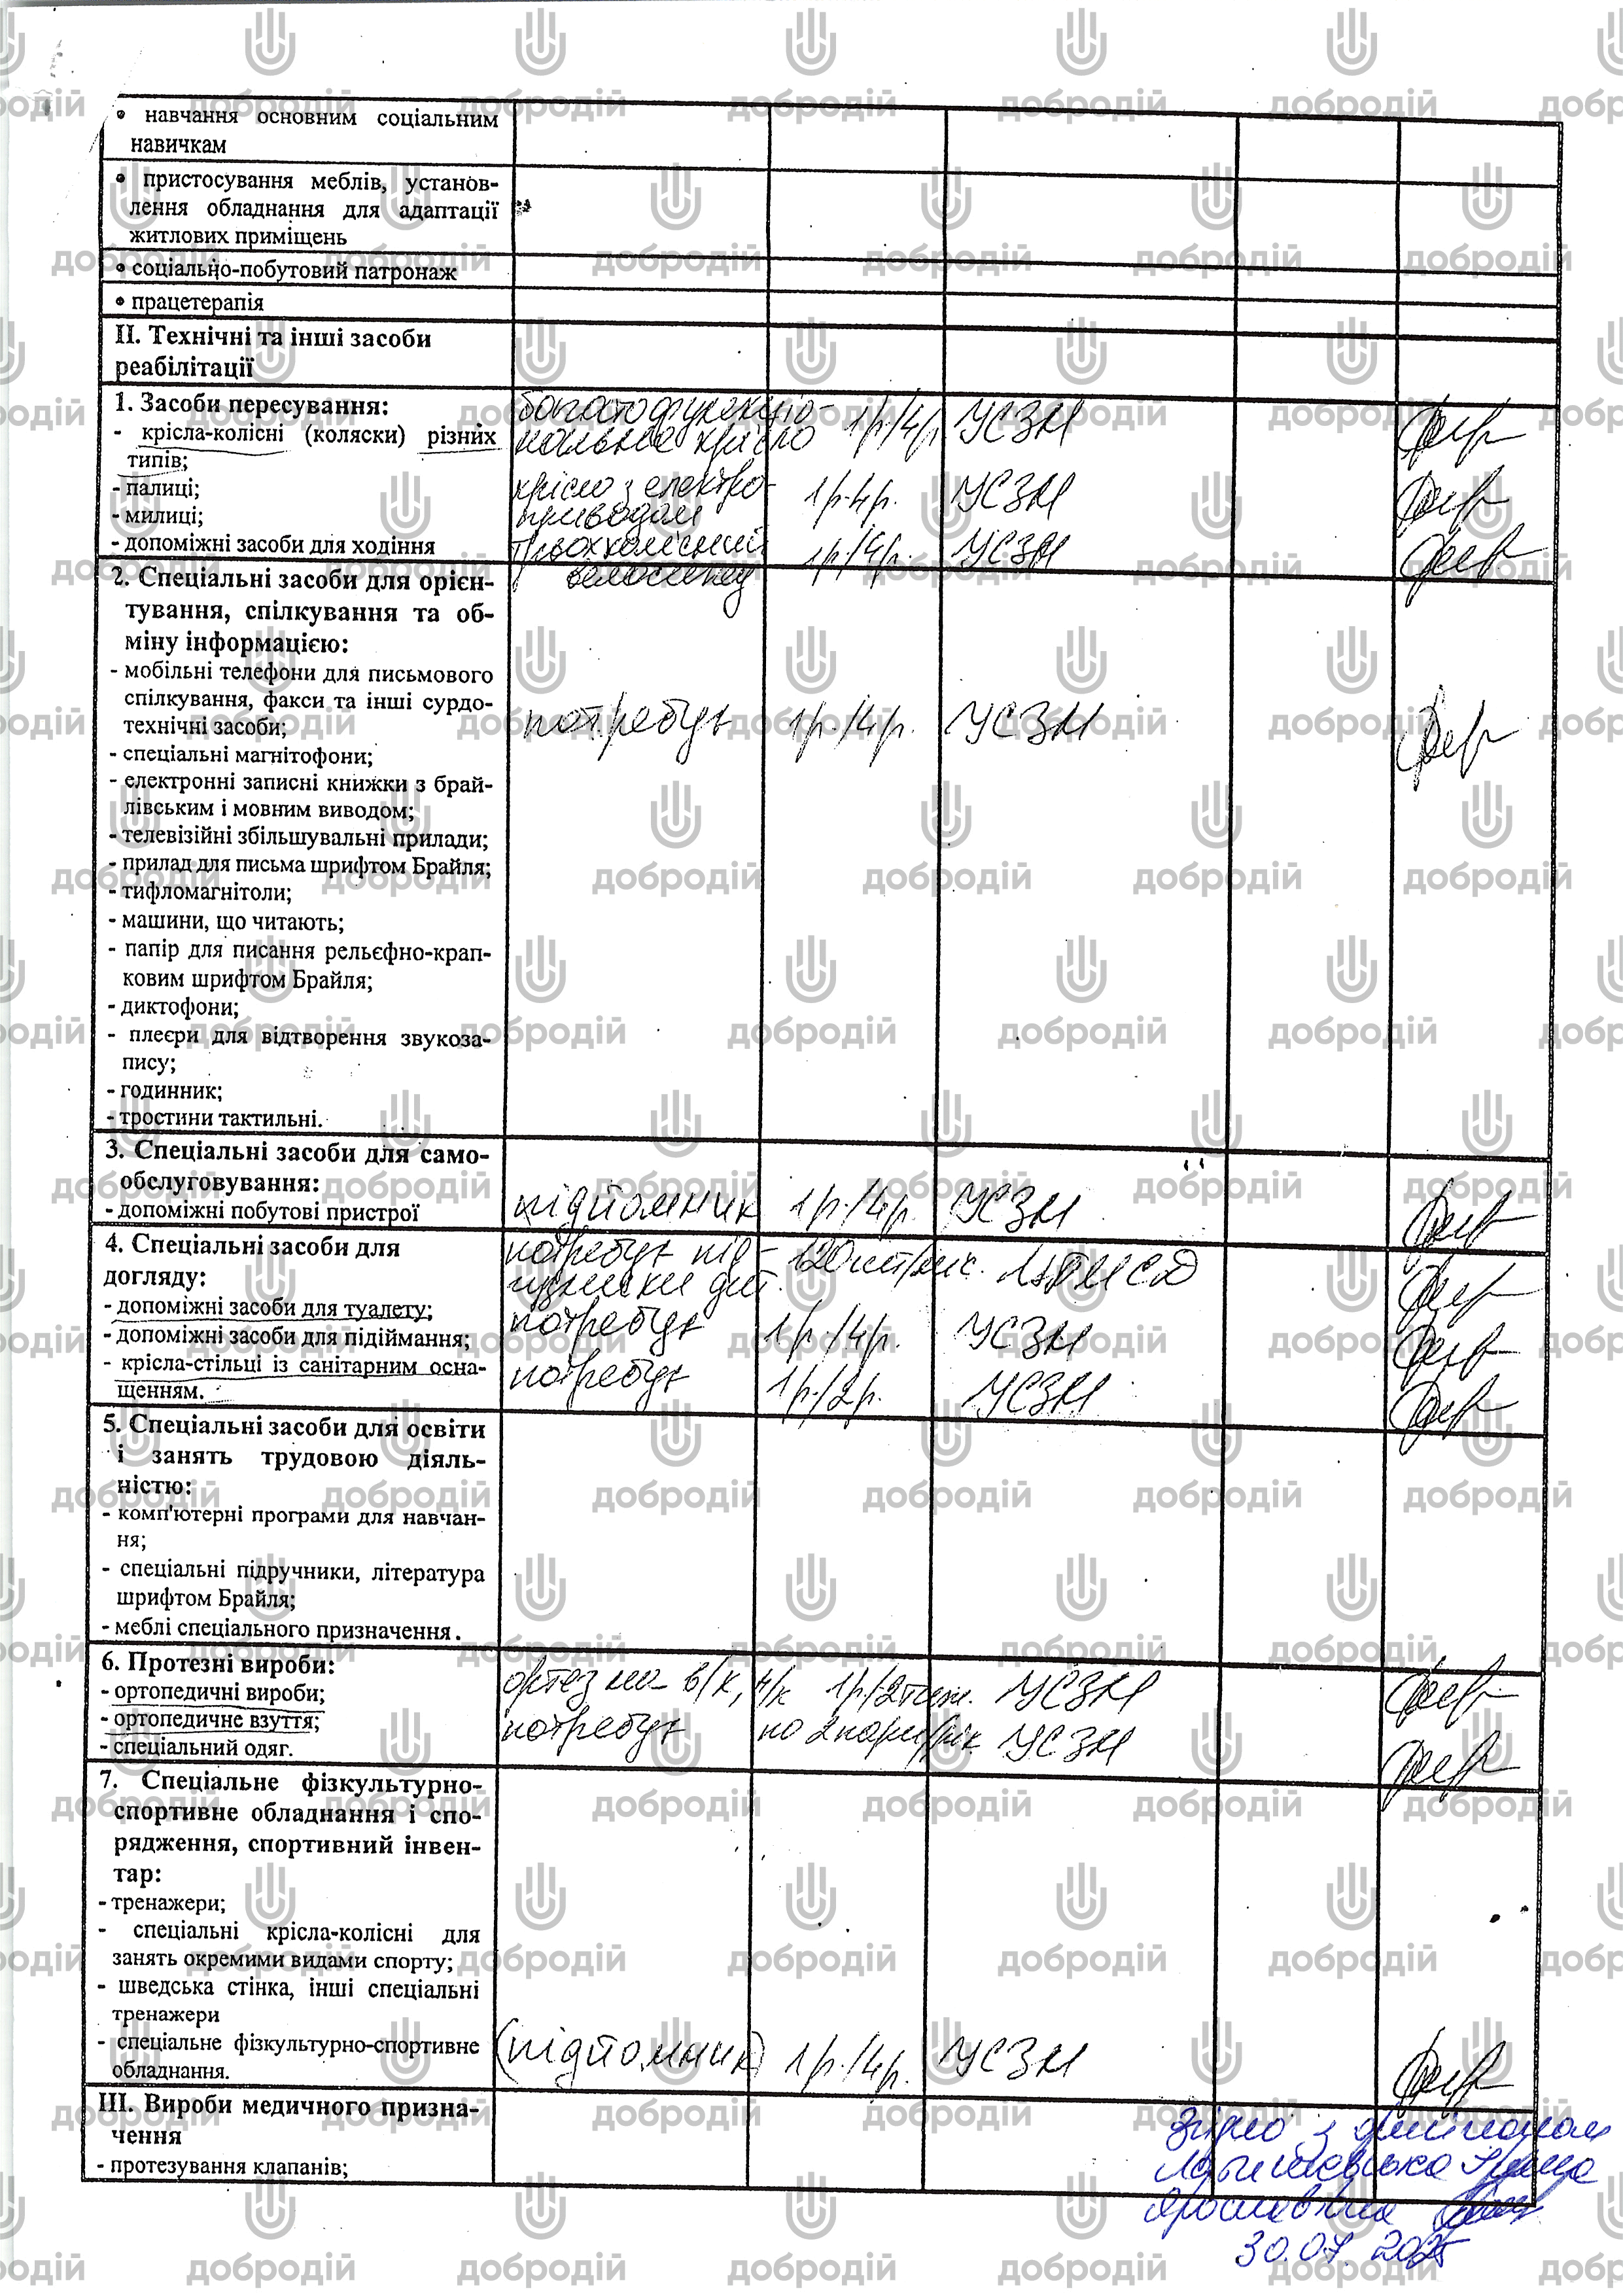 • навчання основним соціальним
навичкам
• пристосування меблів, установ-
лення обладнання для адаптації
житлових приміщень
• соціально-побутовий патронаж
• працетерапія
II. Технічні та інші засоби
реабілітації
1. Засоби пересування:
- крісла-колісні (коляски) різних
типів;
- палиці;
- милиці;
- допоміжні засоби для ходіння
багатофункціо-
нальне крісло 1р/4р УСЗН
крісло з електро-
приводом 1р.4р. УСЗН
трьохколісний 1р/4р. УСЗН
велосипед
2. Спеціальні засоби для орієн-
тування, спілкування та об-
міну інформацією:
- мобільні телефони для письмового
спілкування, факси та інші сурдо-
технічні засоби; потребує 1р./4р. УСЗН
- спеціальні магнітофони;
- електронні записні книжки з брай-
лівським і мовним виводом;
- телевізійні збільшувальні прилади;
- прилад для письма шрифтом Брайля;
- тифломагнітоли;
- машини, що читають;
- папір для писання рельєфно-крап-
ковим шрифтом Брайля;
- диктофони;
- плеєри для відтворення звукоза-
пису;
- годинник;
- тростини тактильні.
3. Спеціальні засоби для само-
обслуговування:
- допоміжні побутові пристрої підйомник 1р./4р. УСЗН
4. Спеціальні засоби для
догляду:
- допоміжні засоби для туалету;
- допоміжні засоби для підіймання;
- крісла-стільці із санітарним осна-
щенням.
потребує під-
гузники дит. 120шт/міс.
потребує 1р./4р. УСЗН
потребує 1р./2р. УСЗН
5. Спеціальні засоби для освіти
і занять трудовою діяль-
ністю:
- комп'ютерні програми для навчан-
ня;
- спеціальні підручники, література
шрифтом Брайля;
- меблі спеціального призначення.
6. Протезні вироби:
- ортопедичні вироби; ортез на в/к, н/к УСЗН
- ортопедичне взуття; потребує по 2 пари/рік УСЗН
- спеціальний одяг.
7. Спеціальне фізкультурно-
спортивне обладнання і спо-
рядження, спортивний інвен-
тар:
- тренажери;
- спеціальні крісла-колісні для
занять окремими видами спорту;
- шведська стінка, інші спеціальні
тренажери
- спеціальне фізкультурно-спортивне
обладнання. (підйомник) 1р./4р. УСЗН
III. Вироби медичного призна-
чення
- протезування клапанів;
Згідно з оригіналом
Ярославівна
30.07.2025
добродій